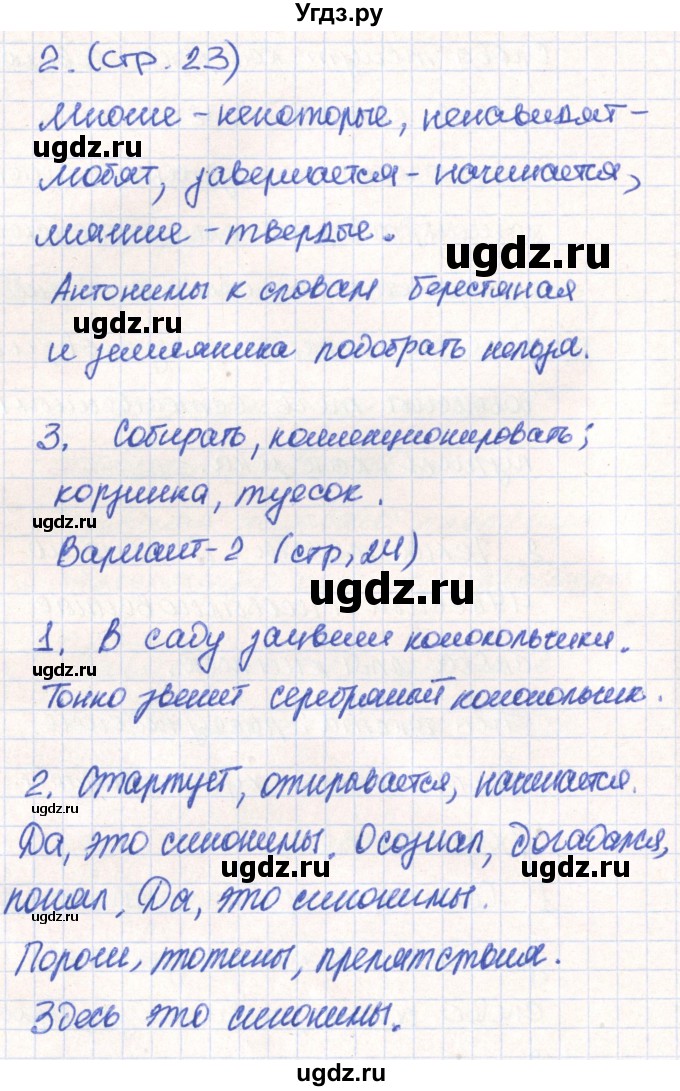 Угдз.ру
2. (стр. 23)
Многие - некоторые, ненавидят -
ugdz.ru
любят, завершается - начинается,
мягкие - твердые.
ugdz.ru
Антонимы к словам берестяная
ugdz.ru
и земляника подобрать нельзя.
ugdz.ru
3. Собирать, коллекционировать;
корзинка, туесок.
ugdz.ru
Вариант-2 (стр, 24)
ugdz.ru
1. В саду зацвели колокольчики.
ugdz.ru
Тонко звенит серебряный колокольчик.
2. Стартует, открывается, начинается.
ugdz.ru
Да, это синонимы. Осознал, догадался,
ugdz.ru
понял. Да, это синонимы.
ugdz.ru
Пороги, плотины, препятствия.
Здесь это синонимы.
ugdz.ru